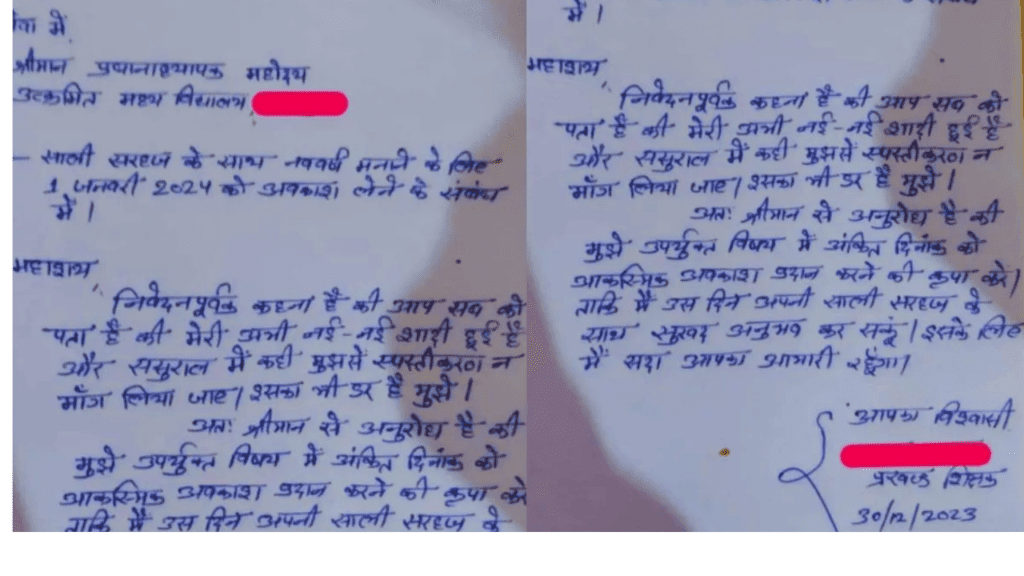 सेवा में,
श्रीमान प्रधानाध्यापक महोदय
उत्क्रमित मध्य विद्यालय
- साली सरहज के साथ नववर्ष मनाने के लिए
1 जनवरी 2024 को अवकाश लेने के संबंध
में।
महाशय,
निवेदनपूर्वक कहना है की आप सब को
पता है की मेरी अभी नई-नई शादी हुई है
और ससुराल में कही मुझसे स्पस्तीकरण न
माँग लिया जाए। इसका भी डर है मुझे।
अतः श्रीमान से अनुरोध है की
मुझे उपर्युक्त विषय में अंकित दिनांक को
आकस्मिक अवकाश प्रदान करने की कृपा करे
ताकि मैं उस दिन अपनी साली सरहज के
में।
महाशय,
निवेदनपूर्वक कहना है की आप सब को
पता है की मेरी अभी नई-नई शादी हुई है
और ससुराल में कही मुझसे स्पस्तीकरण न
माँग लिया जाए। इसका भी डर है मुझे।
अतः श्रीमान से अनुरोध है की
मुझे उपर्युक्त विषय में अंकित दिनांक को
आकस्मिक अवकाश प्रदान करने की कृपा करे।
ताकि मैं उस दिन अपनी साली सरहज के
साथ सुखद अनुभव कर सकूं। इसके लिए
मैं सदा आपका आभारी रहूँगा।
आपका विश्वासी
प्रखण्ड शिक्षक
30/12/2023